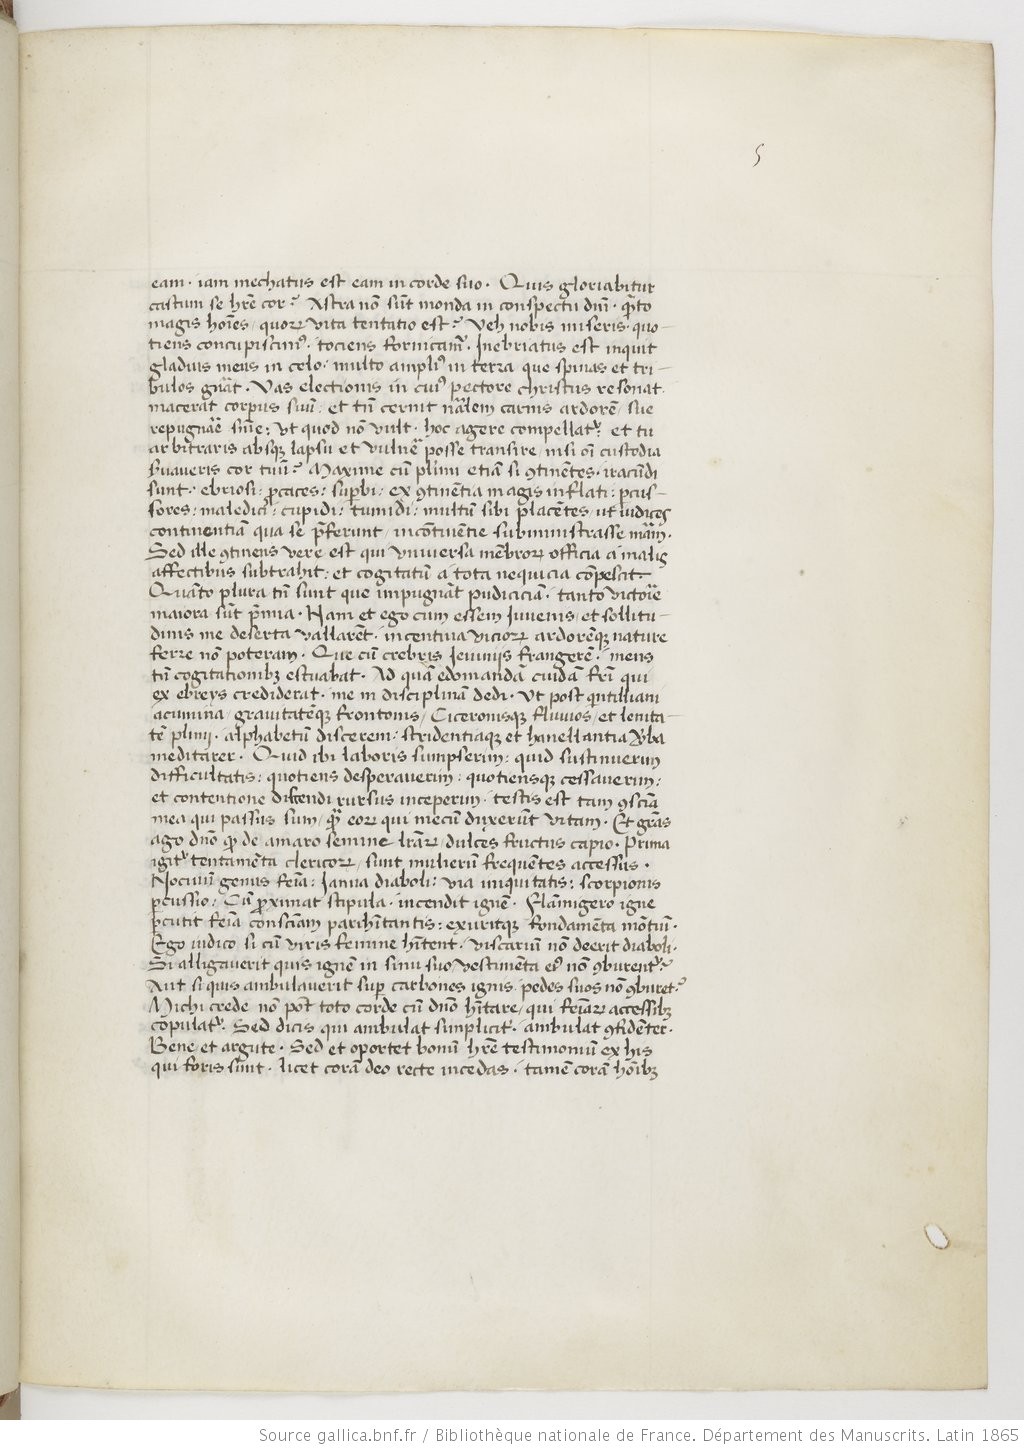 5
eam · iam mechatus est eam in corde suo · Quis gloriabitur
castum se hr̄e cor? Astra nō sūt monda in conspectu dnī · q̄to
magis hoīes / quoꝝ vita tentatio est? Veh nobis miseris · quo-
tiens concupiscimꝰ · tociens fornicamᷣ. Inebriatus est inquit
gladius meus in celo · multo ampliꝰ in terra que spinas et tri-
bulos gn̄at · Vas electionis in cuiꝰ pectore christus resonat ·
macerat corpus suū : et tn̄ cernit nāl̄em carnis ardorē / sue
repugnār̄e sn̄ie : ut quod nō vult · hoc agere compellatᷣ · et tu
arbitraris absqꝫ lapsu et vulnēr̄e posse transire / nisi oī custodia
suaveris cor tuū? Maxime cū plīmi etiā si ꝯtinētes · iracūdi
sunt · ebriosi · ꝓcaces : suꝑbi · ex ꝯtinētia magis inflati : ꝑcus-
sores : maledici : cupidi : tumidi : multū sibi placētes / ut iudices
continentiam qua se p̄ferunt / incōtinētie subministrasse mām̄ ·
Sed ille ꝯtinens vere est qui vniversa mēbroꝝ officia a malis
affectibus subtrahit : et cogitatū a tota nequicia cōpescit ·
Quāto plura tn̄ sunt que impugnāt pudiciciā · tanto victorīe
maiora sūt p̄mia · Nam et ego cum essem juvenis / et sollitu-
dinis me deserta vallarēt · incentiva vicioꝝ ardorēqꝫ nature
ferre nō poteram · Que cū crebris jeiuniis frangerē · mens
tn̄ cogitationibꝫ estuabat · Ad quā edomandā cuidā frī qui
ex ebreys crediderat · me in disciplinā dedi · Ut post qntiliani
acumina / gravitatēqꝫ frontonis / Ciceronisqꝫ fluvios / et lenita-
tē plinij · alphabetū discerem : stridentiaqꝫ et hanellantia v̄ba
meditarer · Quid ibi laboris sumpserim : quid sustinuerim
difficultatis : quotiens desperaverim : quotiensqꝫ cessaverim :
et contentione discendi rursus inceperim · testis est tam ꝯsciā
mea qui passus sum / q̄ȝ eoꝝ qui mecū duxerūt vitam · Et grās
ago dnō q̄ de amaro semine lrāꝝ / dulces fructus capio · Prima
igitᷣ tentamēta clericoꝝ / sunt mulierū frequētes accessus ·
Nocivū genus feīa : Janua diaboli : via iniquitatis : scorpionis
ꝑcussio : Cū ꝓximat stipula · incendit ignē · Flāmigero igne
ꝑcutit feīa consciam parihītantis : exuritqꝫ fondamēta mōtiū ·
Ego iudico si cū viris femine hītent · viscariū nō deerit diaboli ·
Si alligaverit quis ignē in sinu suo / vestimēta eiꝰ nō ꝯburentᷣ?
Aut si quis ambulaverit suꝑ carbones ignis · pedes suos nō ꝯburet?
Michi crede nō pōt toto corde cū dnō hītare / qui feīaꝝ accessibꝫ
copulatᷣ · Sed dicis qui ambulat simplicitᷣ · ambulat ꝯfidēter ·
Bene et argute · Sed et oportet bonū hr̄e testimoniū ex his
qui foris sunt · licet corā deo recte incedas · tamē corā hōibꝫ
Source gallica.bnf.fr / Bibliothèque nationale de France. Département des Manuscrits. Latin 1865